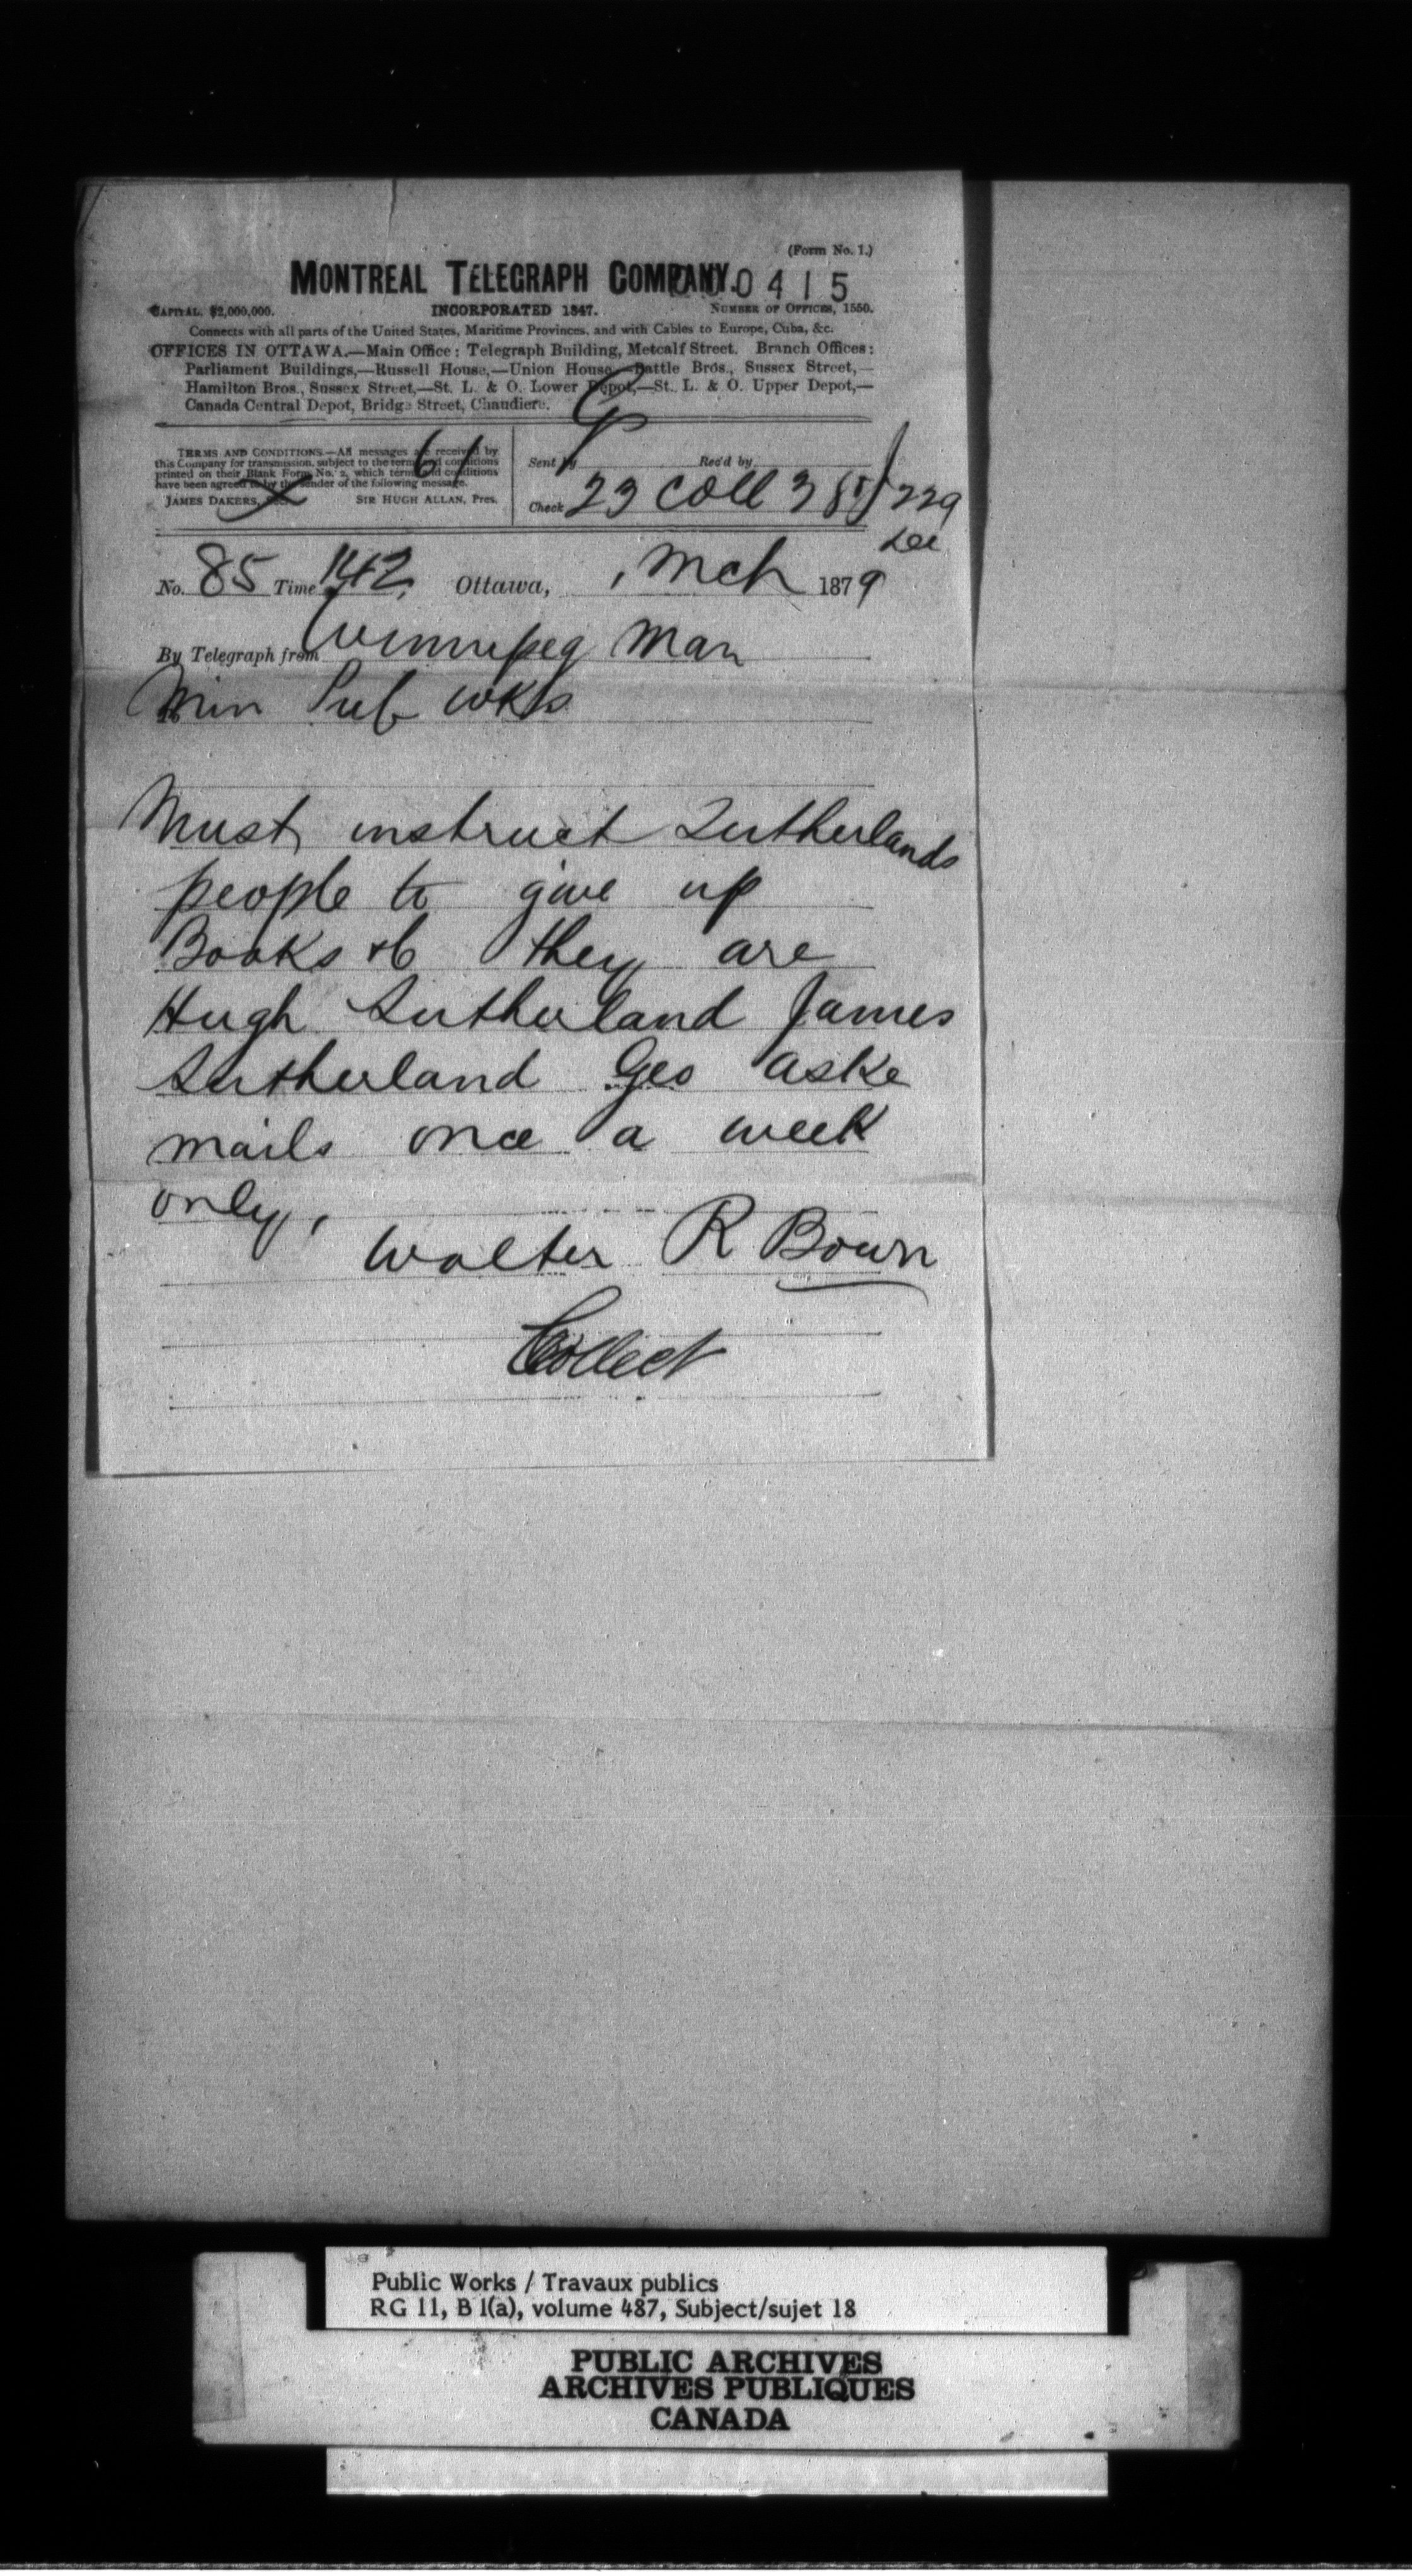 (Form No. 1.)
MONTREAL TELEGRAPH COMPANY.
000415
CAPITAL, $2,000,000. INCORPORATED 1847. NUMBER OF OFFICES, 1550.
Connects with all parts of the United States, Maritime Provinces, and with Cables to Europe, Cuba, &c.
OFFICES IN OTTAWA.—Main Office: Telegraph Building, Metcalf Street. Branch Offices:
Parliament Buildings,—Russell House,—Union House,—Battle Bros., Sussex Street,—
Hamilton Bros., Sussex Street,—St. L. & O. Lower Depot,—St. L. & O. Upper Depot,—
Canada Central Depot, Bridge Street, Chaudiere.
TERMS AND CONDITIONS.—All messages are received by
this Company for transmission, subject to the terms and conditions
printed on their Blank Form No. 2, which terms and conditions
have been agreed to by the sender of the following message.
JAMES DAKERS, Sec. SIR HUGH ALLAN, Pres.
61
Sent by Rec'd by
Check 23 Coll 3 85/229
No. 85 Time 142 Ottawa, 1 Mch 1879
By Telegraph from Winnipeg Man
To Min Pub Wks
Must instruct Sutherlands
people to give up
Books &c they are
Hugh Sutherland James
Sutherland Geo Aske
mails once a week
only,
Walter R Bown
Collect
Public Works / Travaux publics
RG 11, B 1(a), volume 487, Subject/sujet 18
PUBLIC ARCHIVES
ARCHIVES PUBLIQUES
CANADA